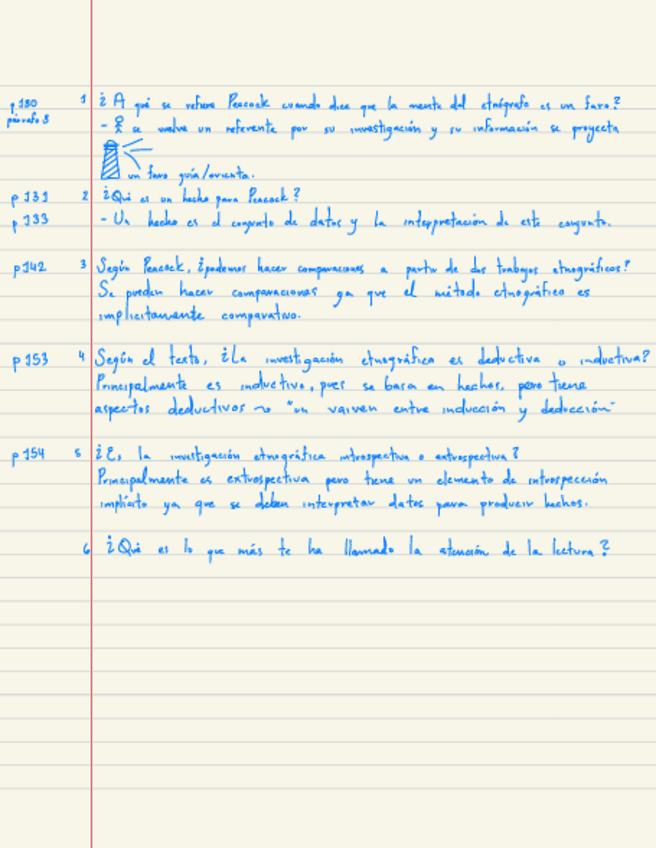 p 130 1 ¿A qué se refiere Peacock cuando dice que la mente del etnógrafo es un faro?
párrafo 3 - se vuelve un referente por su investigación y su información se proyecta
un faro guía/orienta.
p 131 2 ¿Qué es un hecho para Peacock?
p 133 - Un hecho es el conjunto de datos y la interpretación de este conjunto.
p 142 3 Según Peacock, ¿podemos hacer comparaciones a partir de dos trabajos etnográficos?
Se pueden hacer comparaciones ya que el método etnográfico es
implícitamente comparativo.
p 153 4 Según el texto, ¿La investigación etnográfica es deductiva o inductiva?
Principalmente es inductivo, pues se basa en hechos, pero tiene
aspectos deductivos ~> "un vaiven entre inducción y deducción"
p 154 5 ¿Es la investigación etnográfica introspectiva o extrospectiva?
Principalmente es extrospectiva pero tiene un elemento de introspección
implícito ya que se deben interpretar datos para producir hechos.
6 ¿Qué es lo que más te ha llamado la atención de la lectura?